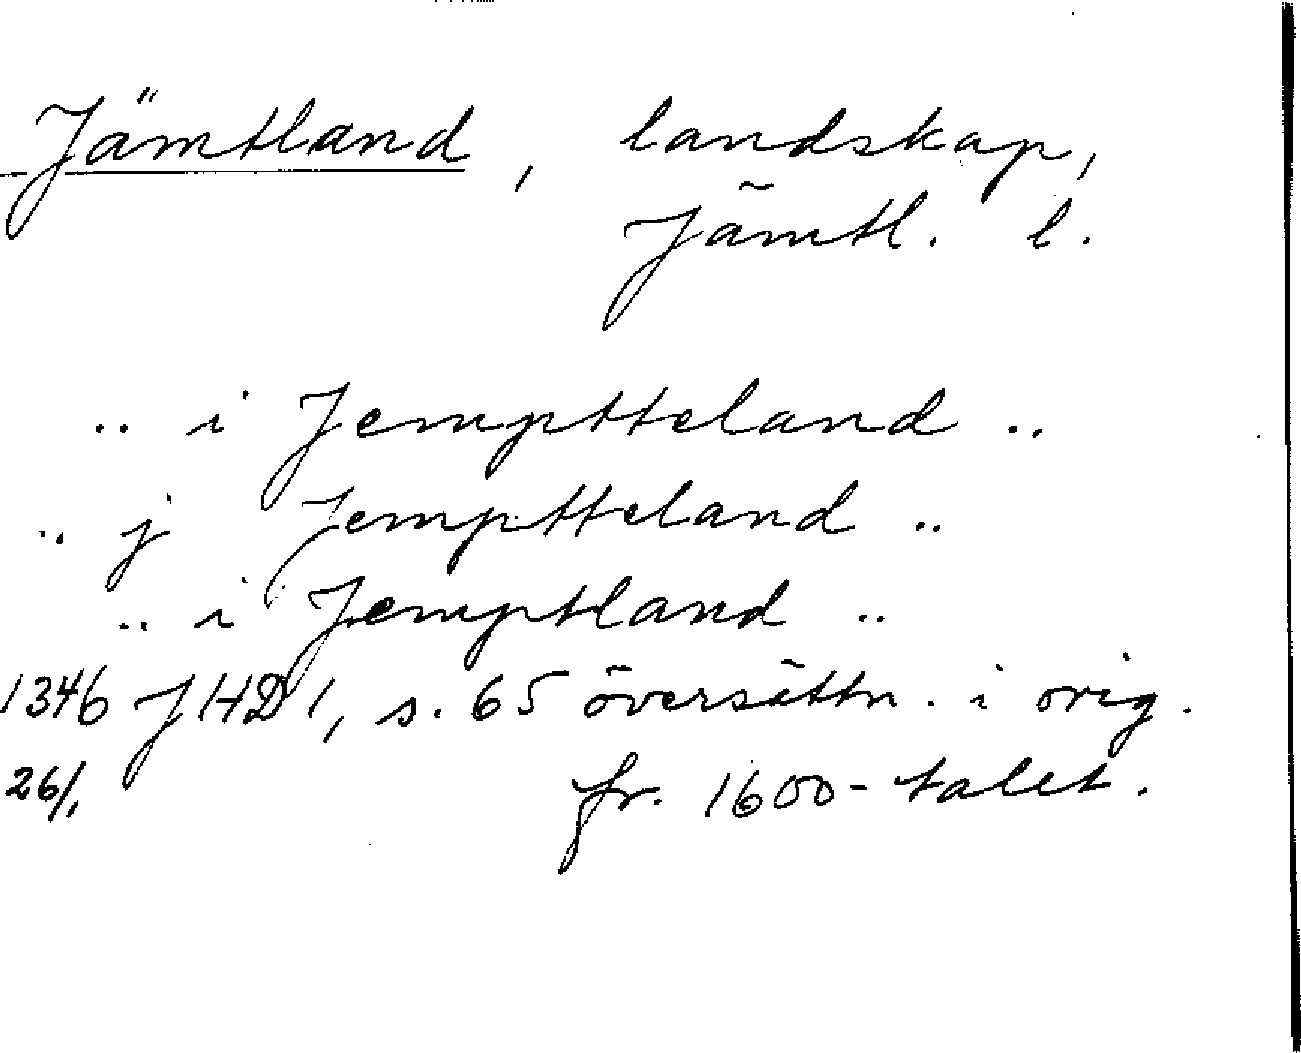 Jämtland, landskap,
Jämtl. l.
.. i Jemptteland ..
.. j Jemptteland ..
.. i Jemptland ..
1346 JHD 1, s. 65 översättn. i orig.
26/1 fr. 1600-talet.